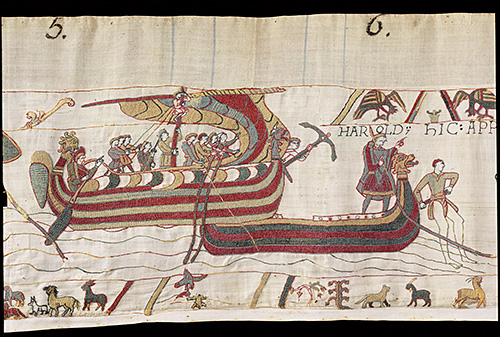 5. 6.
HAROLD: HIC: APP